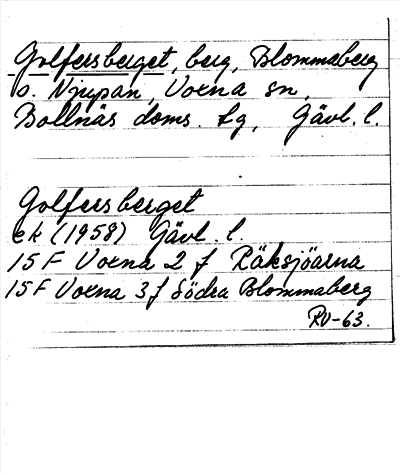 Golfersberget, berg, Blommaberg
o. Njupån, Voxna sn,
Bollnäs doms. tg, Gävl. l.
Golfersberget
ek (1958) Gävl. l.
15 F Voxna 2 f Räksjöarna
15 F Voxna 3 f Södra Blommaberg
RV-63.